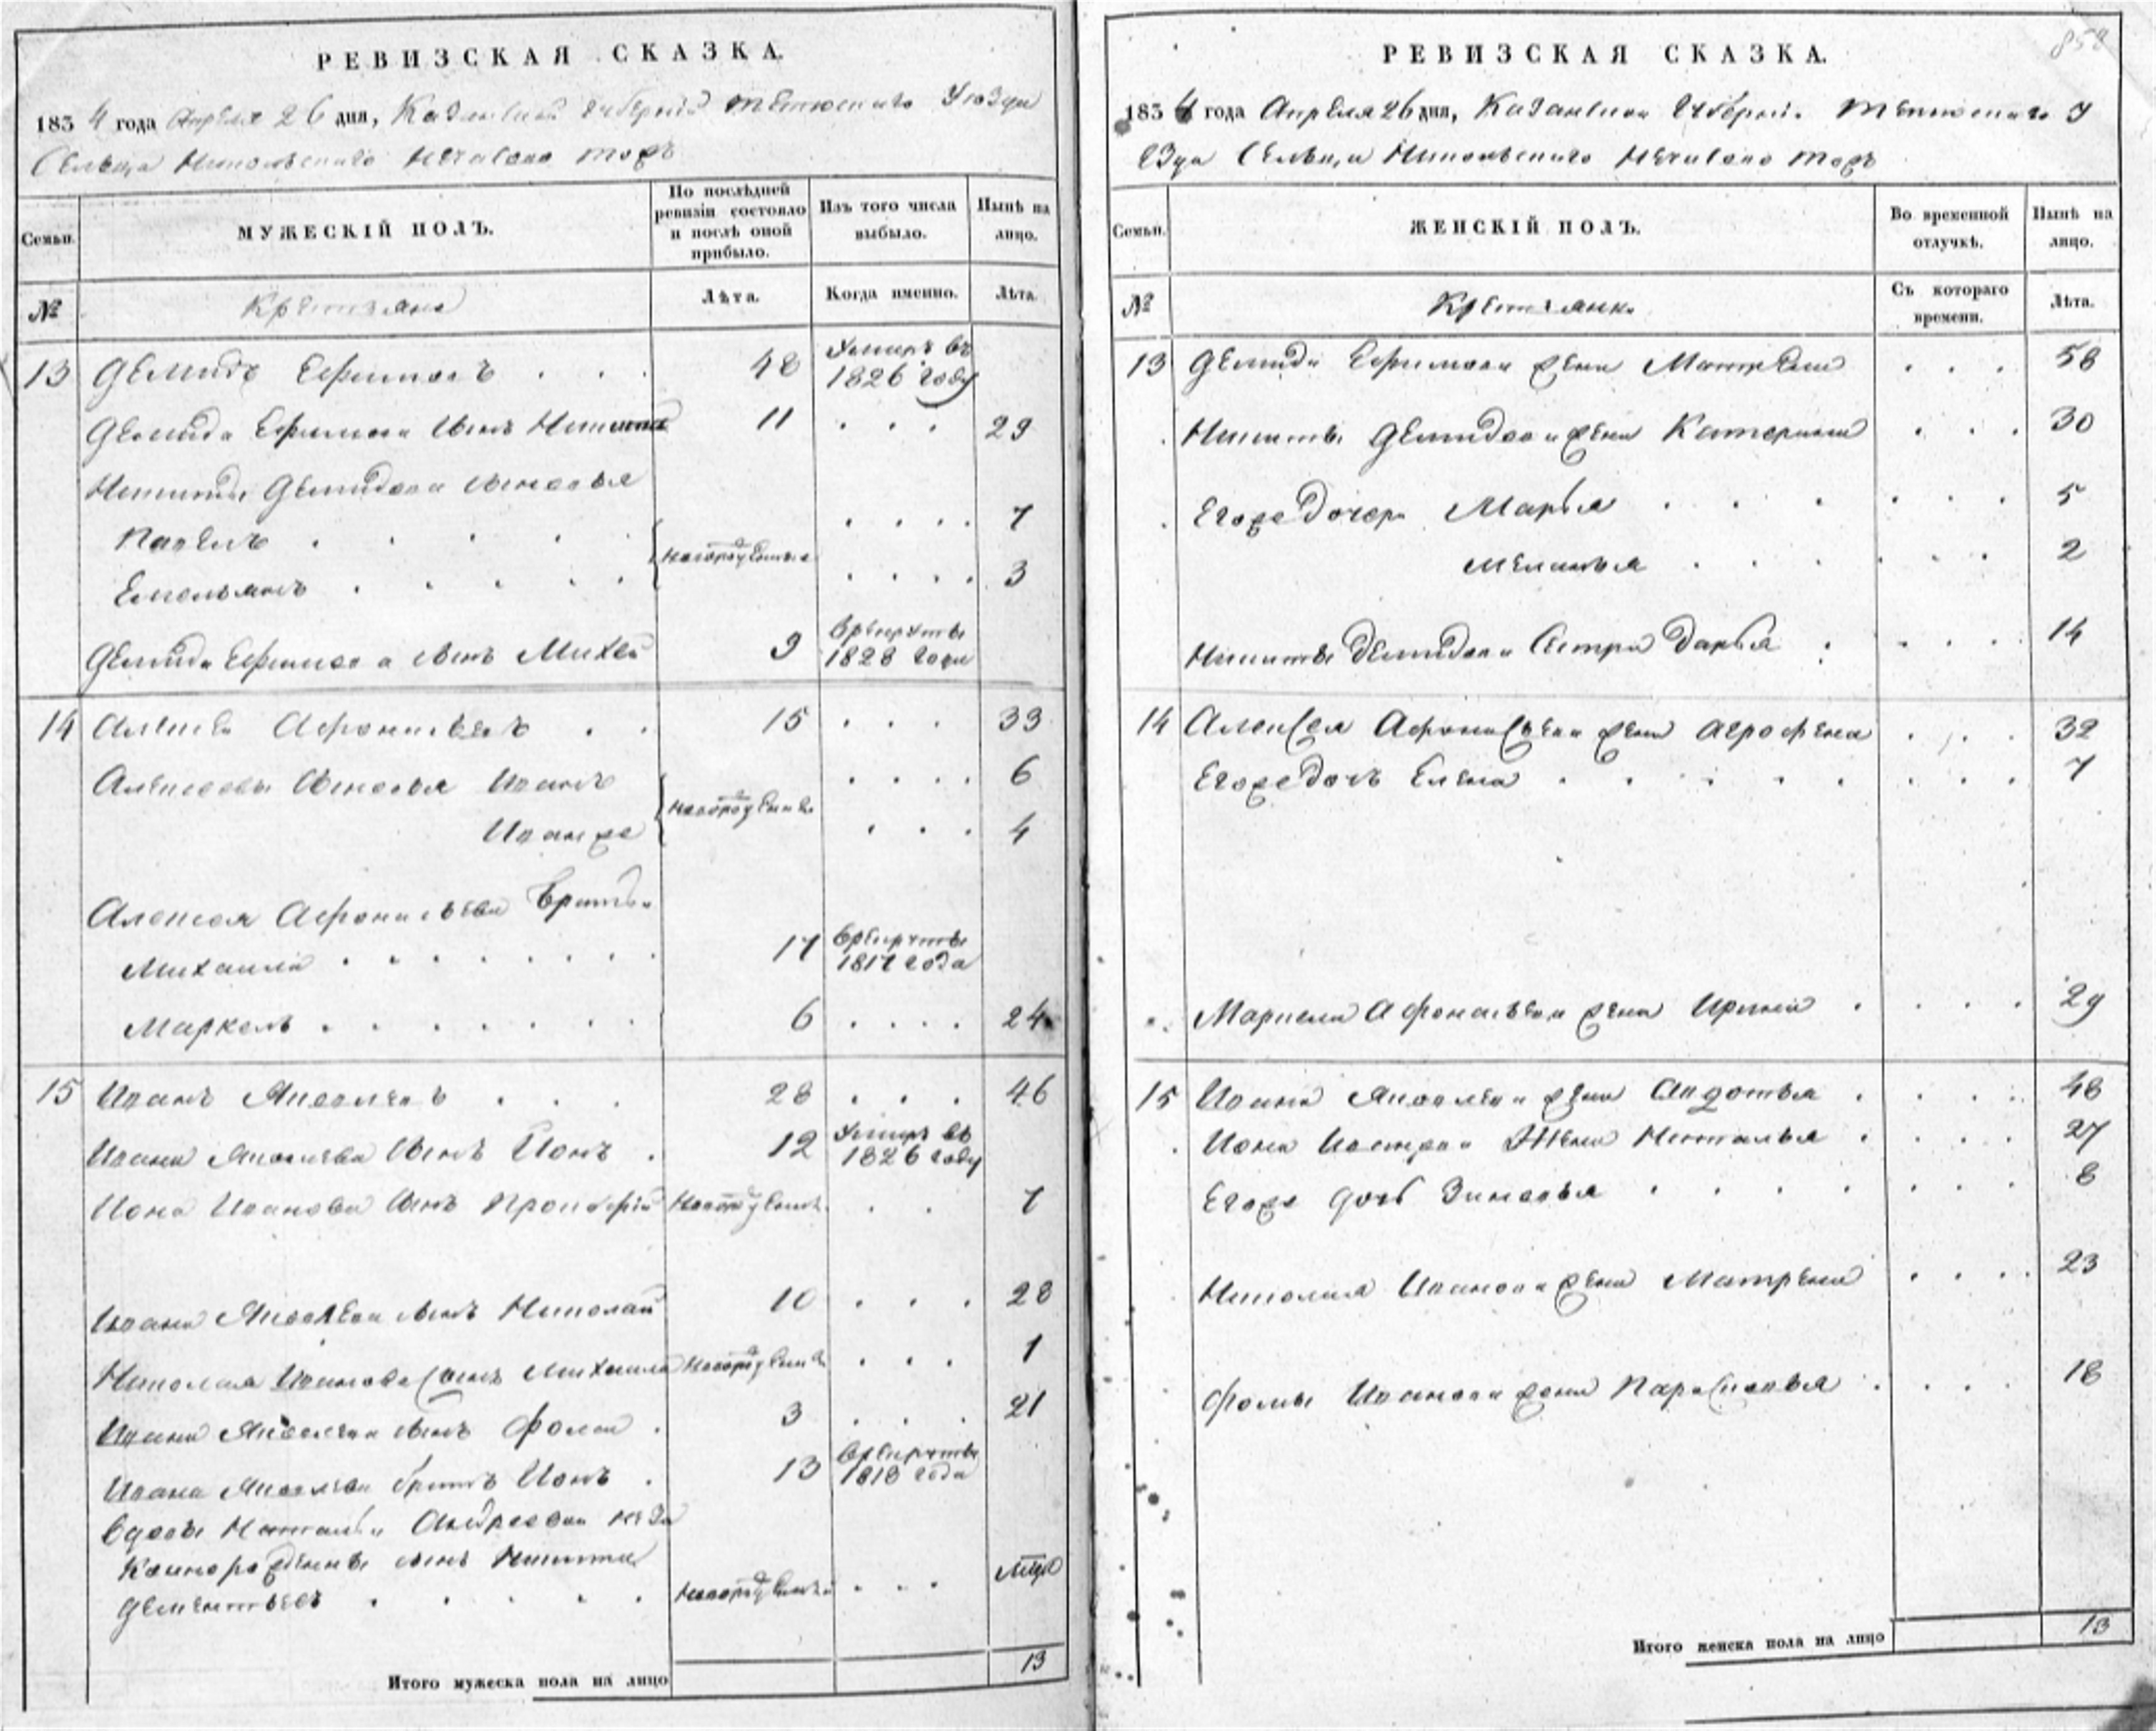 РЕВИЗСКАЯ СКАЗКА.
1834 года Апреля 26 дня, Казанской Губернии Тетюского Уезда
Сельца Никольского Нечасова тожъ
Семьи.
МУЖЕСКІЙ ПОЛЪ.
По послѣдней ревизіи состояло и послѣ оной прибыло.
Изъ того числа выбыло.
Нынѣ на лицо.
№
Крестьяне
Лѣта.
Когда именно.
Лѣта.
13 Демидъ Ефимовъ 48 Умиръ въ 1826 году
Демида Ефимова сынъ Никита 11 29
Никиты Демидова сыновья
Павелъ 7
новорожденные
Емельянъ 3
Демида Ефимова сынъ Михей 9 врекруты 1828 года
14 Алексей Афонасьевъ 15 33
Алексеевы сыновья Иванъ 6
новорожденные
Иванже 4
Алексея Афонасьева братья
Михаила 17 врекруты 1817 года
Маркелъ 6 24
15 Иванъ Яковлевъ 28 46
Ивана Яковлева сынъ Ионъ 12 Умиръ въ 1826 году
Иона Иванова сынъ Прокофий новорожденъ 7
Ивана Яковлева сынъ Николай 10 28
Николая Иванова сынъ Михаила новорожден 1
Ивана Яковлева сынъ Фома 3 21
Ивана Яковлева братъ Ионъ 13 врекруты 1818 года
Вдовы Натальи Андреевой неза
коннорожденны сынъ Никита
Дементьевъ новорожденъ
Итого мужеска пола на лицо 13
858
РЕВИЗСКАЯ СКАЗКА.
1834 года Апреля 26 дня, Казанской Губернии Тетюского У
езда Сельца Никольского Нечасова тожъ
Семьи.
ЖЕНСКІЙ ПОЛЪ.
Во временной отлучкѣ.
Нынѣ на лицо.
№
Крестьянки
Съ котораго времени.
Лѣта.
13 Демида Ефимова жена Матрена 58
Никиты Демидова жена Катерина 30
Егоже дочери Марья 5
Меланья 2
Никиты Демидова Сестра Дарья 14
14 Алексея Афонасьева жена Агрофена 32
Егоже дочь Елена 7
Маркела Афонасьева жена Ирина 29
15 Ивана Яковлева жена Авдотья 48
Иона Иванова Жена Наталья 27
Егоже дочь Зиновья 8
Николая Иванова жена Матрена 23
Фомы Иванова жена Парасковья 18
Итого женска пола на лицо 13